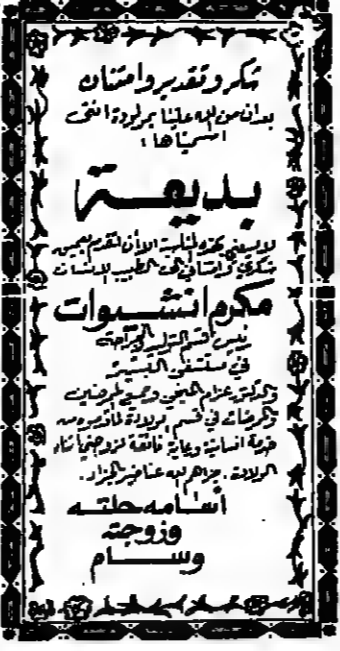 شكر وتقدير وامتنان
بعد ان من الله علينا بمولودة انثى
اسميناها :
بديعة
لا يسعني بهذه المناسبة الا ان اتقدم بعميق
شكري وامتناني الى الطبيب الانسان
مكرم انشيوات
رئيس قسم التوليد والجراحة
في مستشفى
والدكتور عزام وجميع الممرضين
والممرضات في قسم الولادة لما قدموه من
خدمة انسانية ورعاية فائقة لزوجتي اثناء
الولادة . جزاهم الله عنا خير الجزاء .
أسامه حلته
وزوجته
وسام